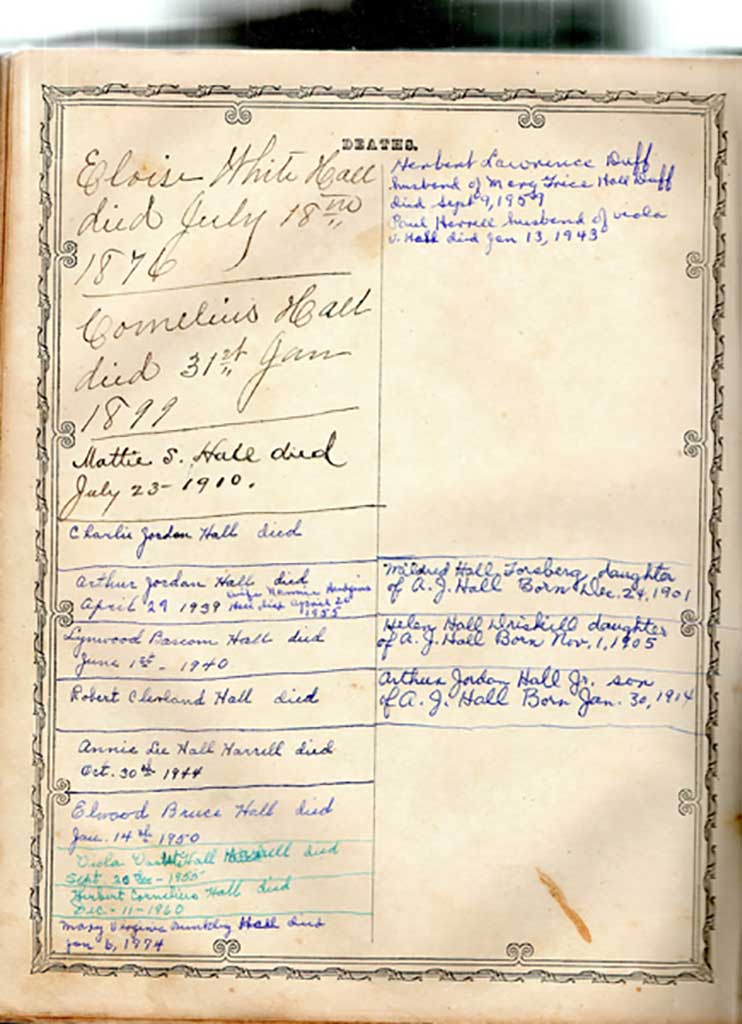 DEATHS.
Eloise White Hall
died July 18th
1876
Cornelius Hall
died 31st Jan
1899
Mattie S. Hall died
July 23 - 1910.
Charlie Jordan Hall died
Arthur Jordan Hall died
April 29 1939 wife Nannie
Hall died April 20
1955
Lynwood Bascom Hall died
June 1st - 1940
Robert Cleveland Hall died
Annie Lee Hall Harrell died
Oct. 30th 1944
Elwood Bruce Hall died
Jan. 14th 1950
Viola Hall Harrell died
Sept. 20 - 1955
Herbert Cornelius Hall died
Dec - 11 - 1960
Mary Virginia Hall died
Jan 6, 1974
Herbert Lawrence Duff
husband of Mary Grice Hall Duff
died Sept 9, 1957
Paul Harrell husband of viola
V. Hall died Jan 13, 1943
Mildred Hall Forsberg, daughter
of A. J. Hall Born Dec. 24, 1901
Helen Hall Driskill daughter
of A. J. Hall Born Nov. 1, 1905
Arthur Jordan Hall Jr. son
of A. J. Hall Born Jan. 30, 1914